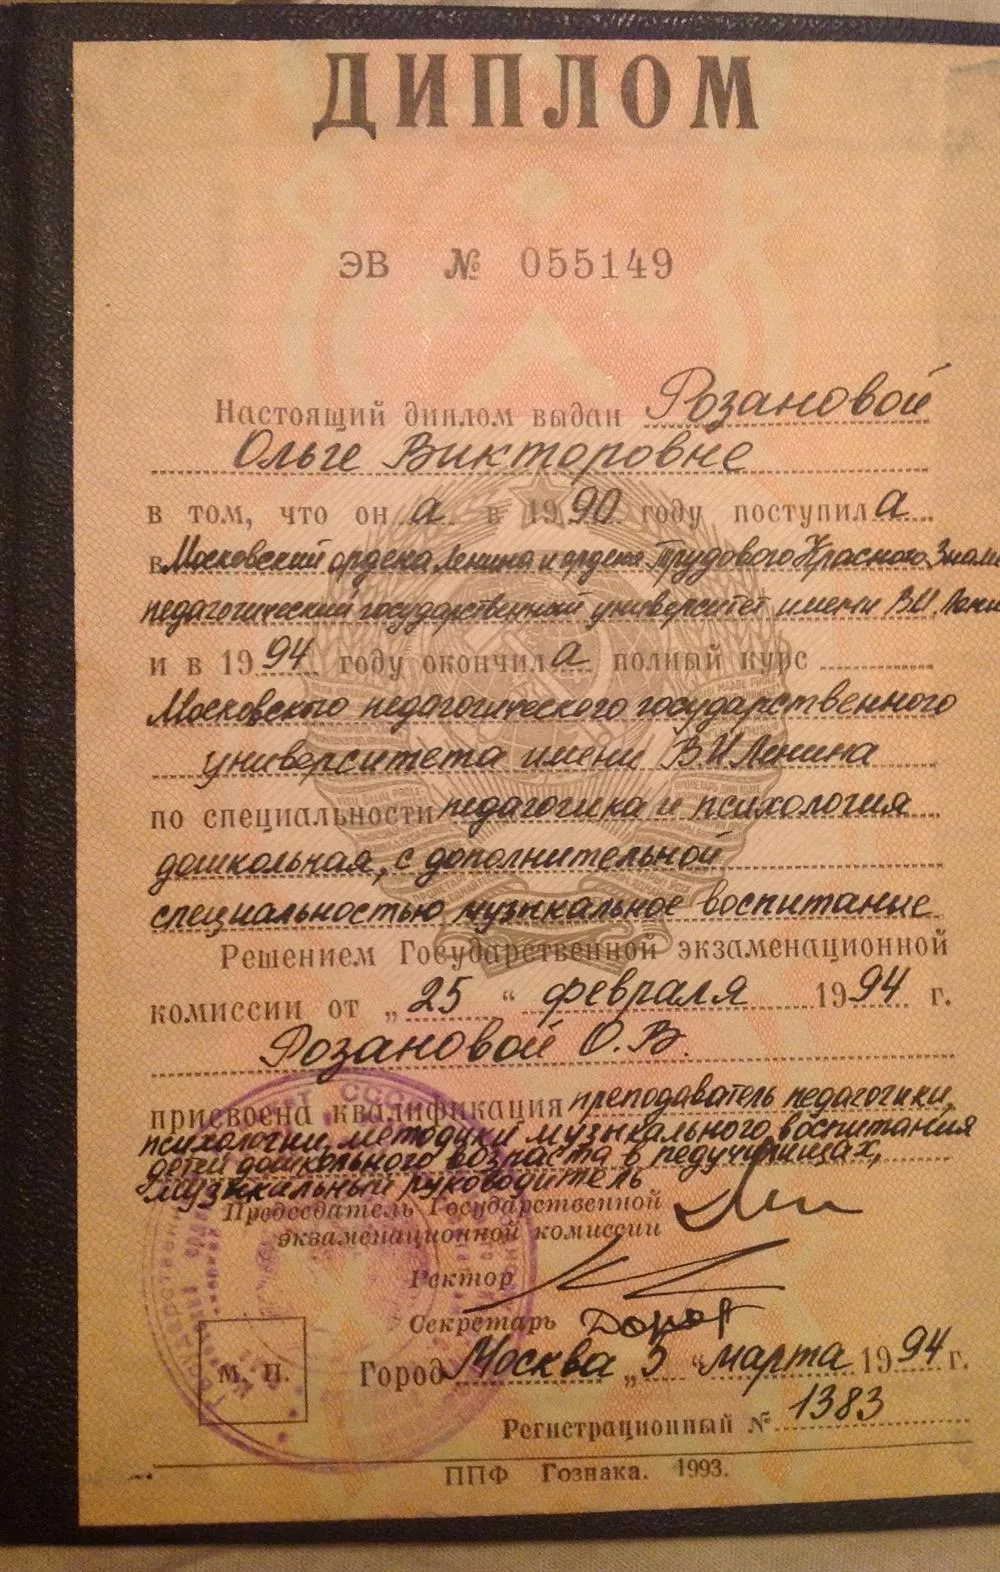 ДИПЛОМ
ЭВ № 055149
Настоящий диплом выдан Розановой
Ольге Викторовне
в том, что он а в 1990 году поступила
в Московский ордена Ленина и ордена Трудового Красного Знаме
педагогический государственный университет имени В.И. Лени
и в 1994 году окончила полный курс
Московского педагогического государственного
университета имени В И Ленина
по специальности педагогика и психология
дошкольная, с дополнительной
специальностью музыкальное воспитание
Решением Государственной экзаменационной
комиссии от „25“ февраля 1994 г.
Розановой О.В.
присвоена квалификация преподаватель педагогики,
психологии, методики музыкального воспитания
детей дошкольного возраста в педучилищах,
музыкальный руководитель
Председатель Государственной
экзаменационной комиссии
Ректор
Секретарь
М. П.
Город Москва „5“ марта 1994 г.
Регистрационный № 1383
ППФ Гознака. 1993.